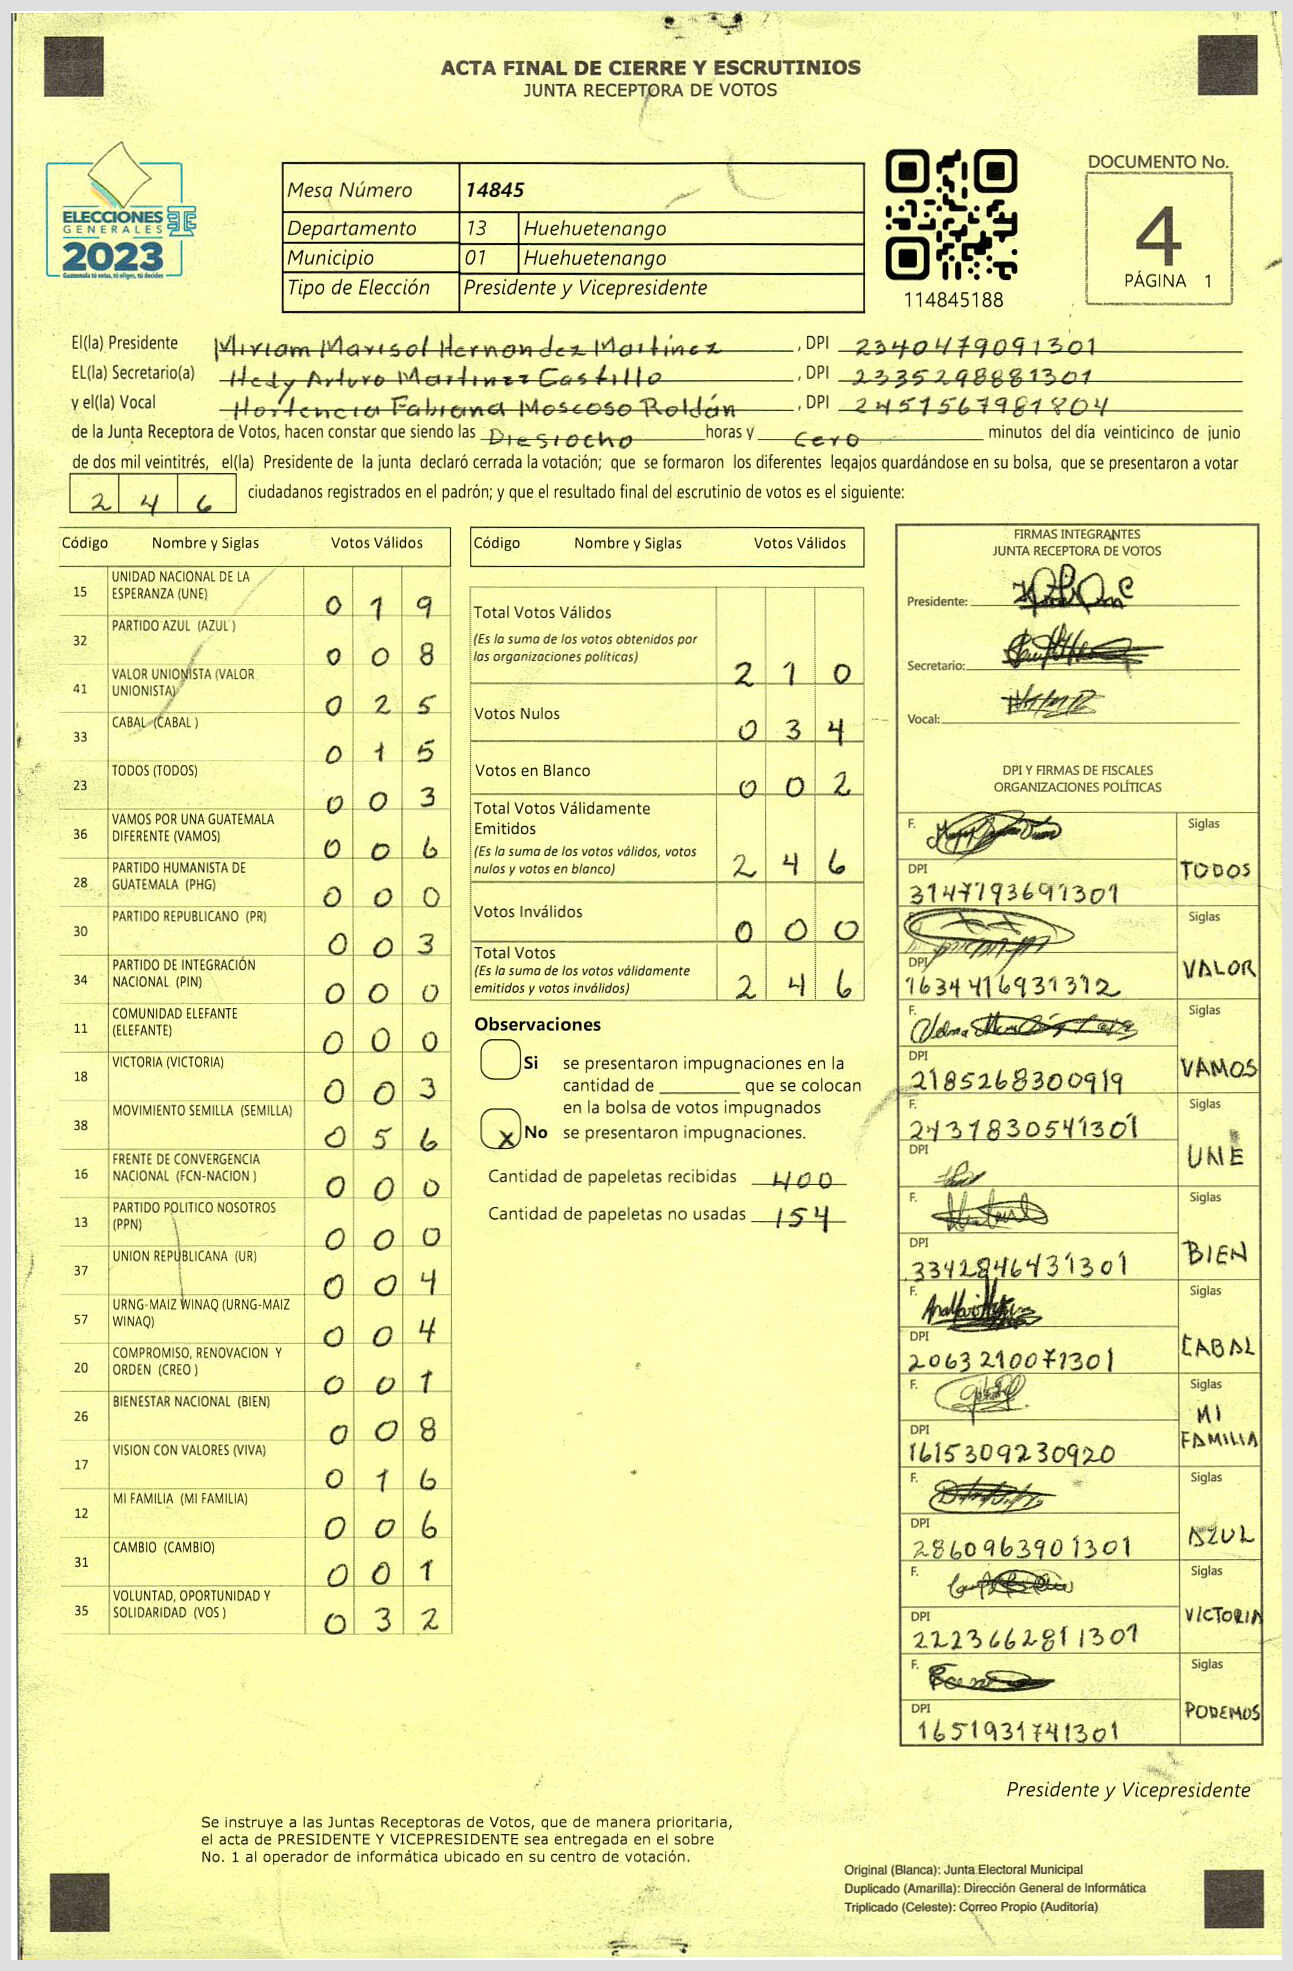 ACTA FINAL DE CIERRE Y ESCRUTINIOS
JUNTA RECEPTORA DE VOTOS
ELECCIONES
GENERALES
2023
Guatemala tú votas, tú eliges, tú decides
Mesa Número 14845
Departamento 13 Huehuetenango
Municipio 01 Huehuetenango
Tipo de Elección Presidente y Vicepresidente
114845188
DOCUMENTO No.
4
PÁGINA 1
El(la) Presidente Miriam Marisol Hernandez Martinez, DPI 2340479091301
EL(la) Secretario(a) Hedy Arturo Martinez Castillo, DPI 2335298881301
y el(la) Vocal Hortencia Fabiana Moscoso Roldán, DPI 2451567981804
de la Junta Receptora de Votos, hacen constar que siendo las Diesiocho horas y Cero minutos del día veinticinco de junio
de dos mil veintitrés, el(la) Presidente de la junta declaró cerrada la votación; que se formaron los diferentes legajos guardándose en su bolsa, que se presentaron a votar
2 4 6 ciudadanos registrados en el padrón; y que el resultado final del escrutinio de votos es el siguiente:
Código Nombre y Siglas Votos Válidos
15 UNIDAD NACIONAL DE LA ESPERANZA (UNE) 0 1 9
32 PARTIDO AZUL (AZUL ) 0 0 8
41 VALOR UNIONISTA (VALOR UNIONISTA) 0 2 5
33 CABAL (CABAL ) 0 1 5
23 TODOS (TODOS) 0 0 3
36 VAMOS POR UNA GUATEMALA DIFERENTE (VAMOS) 0 0 6
28 PARTIDO HUMANISTA DE GUATEMALA (PHG) 0 0 0
30 PARTIDO REPUBLICANO (PR) 0 0 3
34 PARTIDO DE INTEGRACIÓN NACIONAL (PIN) 0 0 0
11 COMUNIDAD ELEFANTE (ELEFANTE) 0 0 0
18 VICTORIA (VICTORIA) 0 0 3
38 MOVIMIENTO SEMILLA (SEMILLA) 0 5 6
16 FRENTE DE CONVERGENCIA NACIONAL (FCN-NACION ) 0 0 0
13 PARTIDO POLITICO NOSOTROS (PPN) 0 0 0
37 UNION REPUBLICANA (UR) 0 0 4
57 URNG-MAIZ WINAQ (URNG-MAIZ WINAQ) 0 0 4
20 COMPROMISO, RENOVACION Y ORDEN (CREO ) 0 0 1
26 BIENESTAR NACIONAL (BIEN) 0 0 8
17 VISION CON VALORES (VIVA) 0 1 6
12 MI FAMILIA (MI FAMILIA) 0 0 6
31 CAMBIO (CAMBIO) 0 0 1
35 VOLUNTAD, OPORTUNIDAD Y SOLIDARIDAD (VOS ) 0 3 2
Código Nombre y Siglas Votos Válidos
Total Votos Válidos
(Es la suma de los votos obtenidos por
las organizaciones políticas) 2 1 0
Votos Nulos 0 3 4
Votos en Blanco 0 0 2
Total Votos Válidamente
Emitidos
(Es la suma de los votos válidos, votos
nulos y votos en blanco) 2 4 6
Votos Inválidos 0 0 0
Total Votos
(Es la suma de los votos válidamente
emitidos y votos inválidos) 2 4 6
Observaciones
Si se presentaron impugnaciones en la
cantidad de ________ que se colocan
en la bolsa de votos impugnados
X No se presentaron impugnaciones.
Cantidad de papeletas recibidas 400
Cantidad de papeletas no usadas 154
FIRMAS INTEGRANTES
JUNTA RECEPTORA DE VOTOS
Presidente:
Secretario:
Vocal:
DPI Y FIRMAS DE FISCALES
ORGANIZACIONES POLÍTICAS
F. Siglas
DPI TODOS
3147793691301
F. Siglas
DPI VALOR
1634416931312
F. Siglas
DPI VAMOS
2185268300919
F. Siglas
2431830541301
DPI UNE
F. Siglas
DPI BIEN
3342846431301
F. Siglas
DPI CABAL
2063210071301
F. Siglas
MI
DPI FAMILIA
1615309230920
F. Siglas
DPI AZUL
2860963901301
F. Siglas
DPI VICTORIA
2223662811301
F. Siglas
DPI PODEMOS
1651931741301
Presidente y Vicepresidente
Se instruye a las Juntas Receptoras de Votos, que de manera prioritaria,
el acta de PRESIDENTE Y VICEPRESIDENTE sea entregada en el sobre
No. 1 al operador de informática ubicado en su centro de votación.
Original (Blanca): Junta Electoral Municipal
Duplicado (Amarilla): Dirección General de Informática
Triplicado (Celeste): Correo Propio (Auditoría)